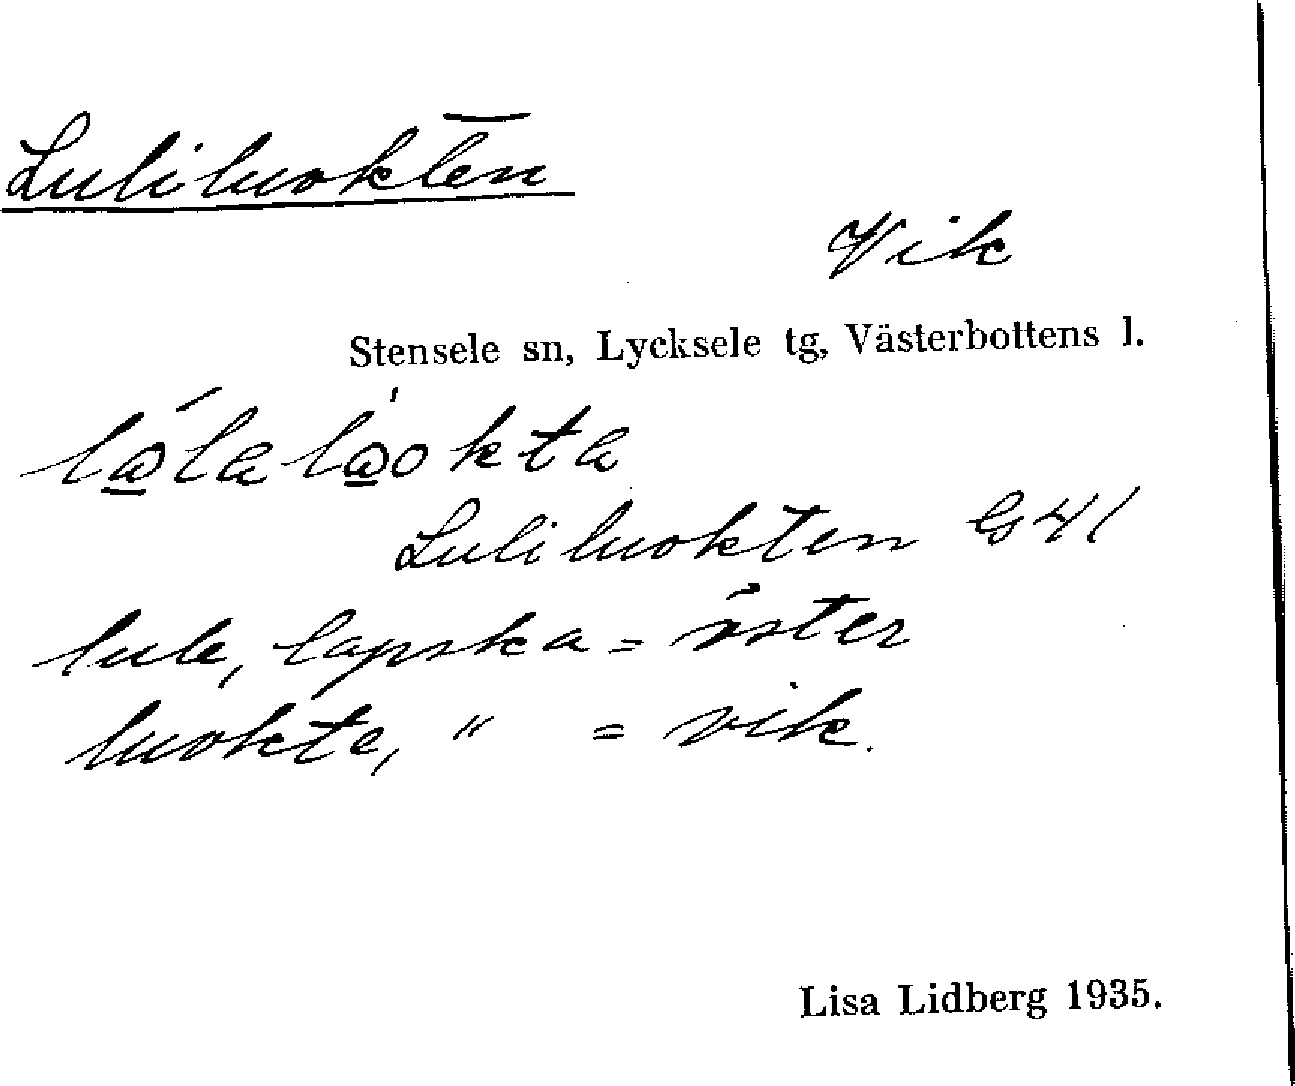 Luliluokten
Vik
Stensele sn, Lycksele tg, Västerbottens l.
lo̲lalo̲okta
Luliluokten G41
lule, lapska = öster
luokte, " = vik.
Lisa Lidberg 1935.